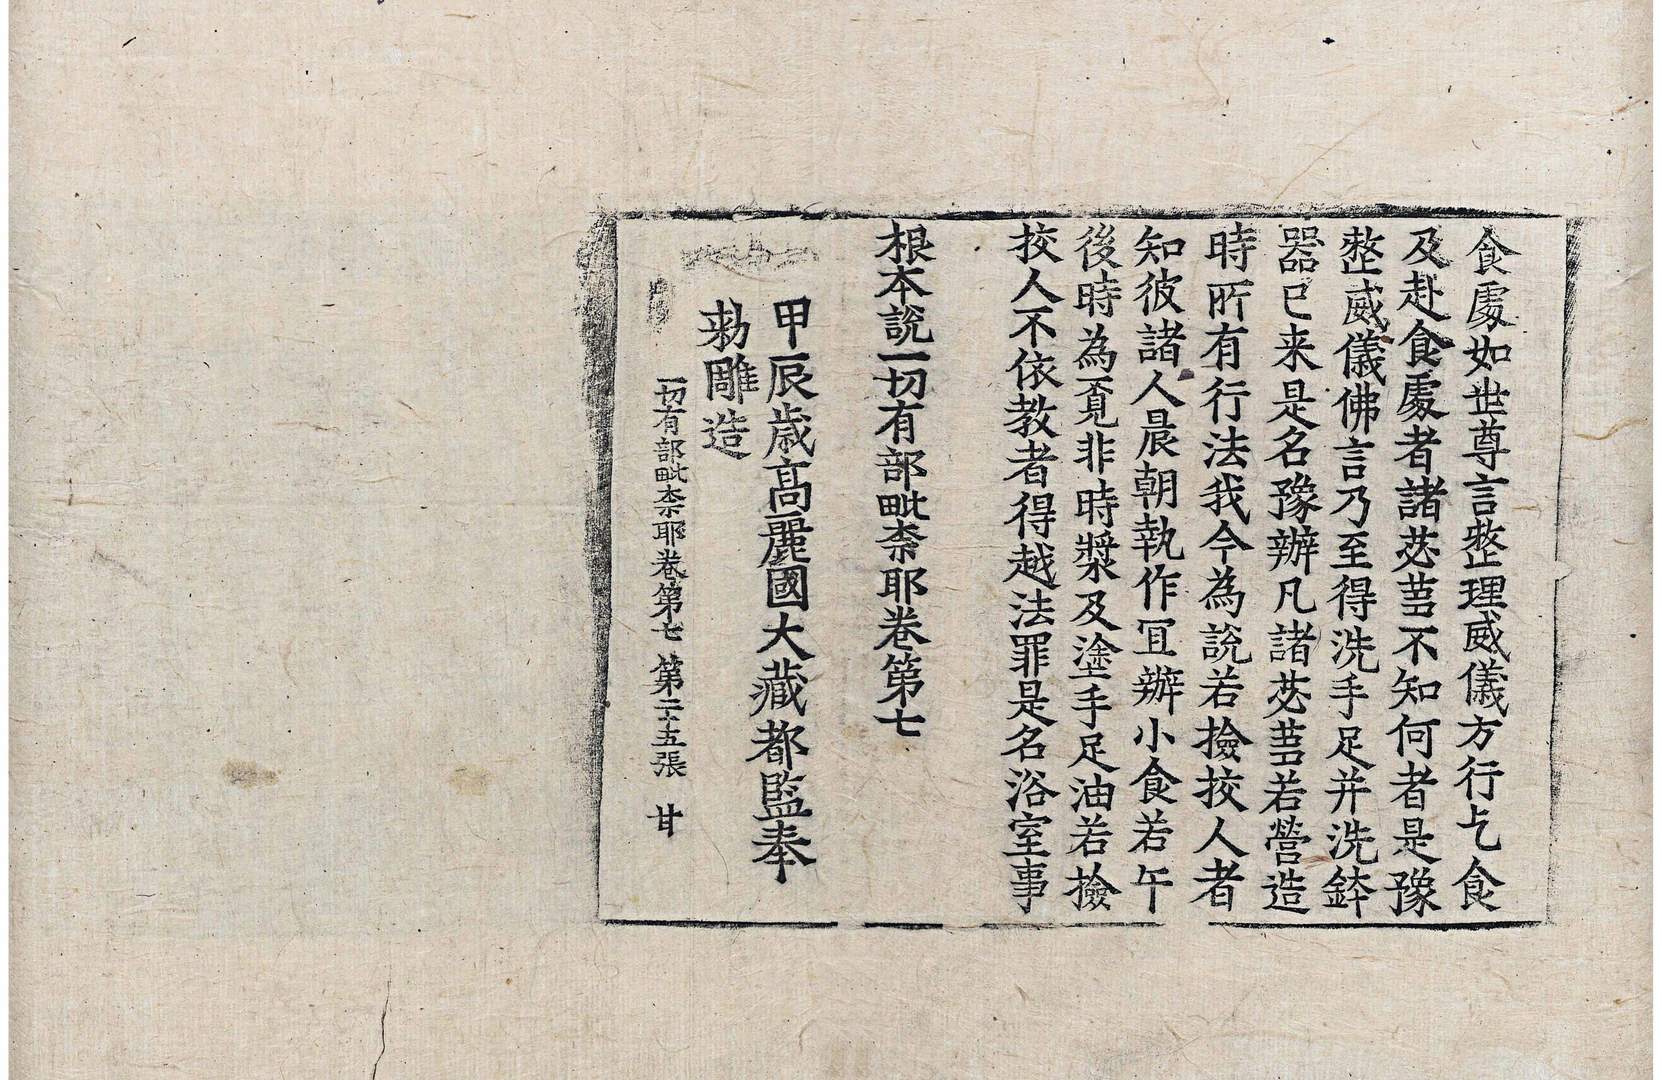 食處如世尊言整理威儀方行乞食
及赴食處者諸苾芻不知何者是豫
整威儀佛言乃至得洗手足并洗鉢
器已来是名豫辦凡諸苾芻若營造
時所有行法我今為說若撿挍人者
知彼諸人晨朝執作冝辦小食若午
後時為覔非時漿及塗手足油若撿
挍人不依教者得越法罪是名浴室事
根本說一切有部毗奈耶卷第七
甲辰歲高麗國大藏都監奉
勑雕造
一切有部毗奈耶卷第七 第二十五張 甘